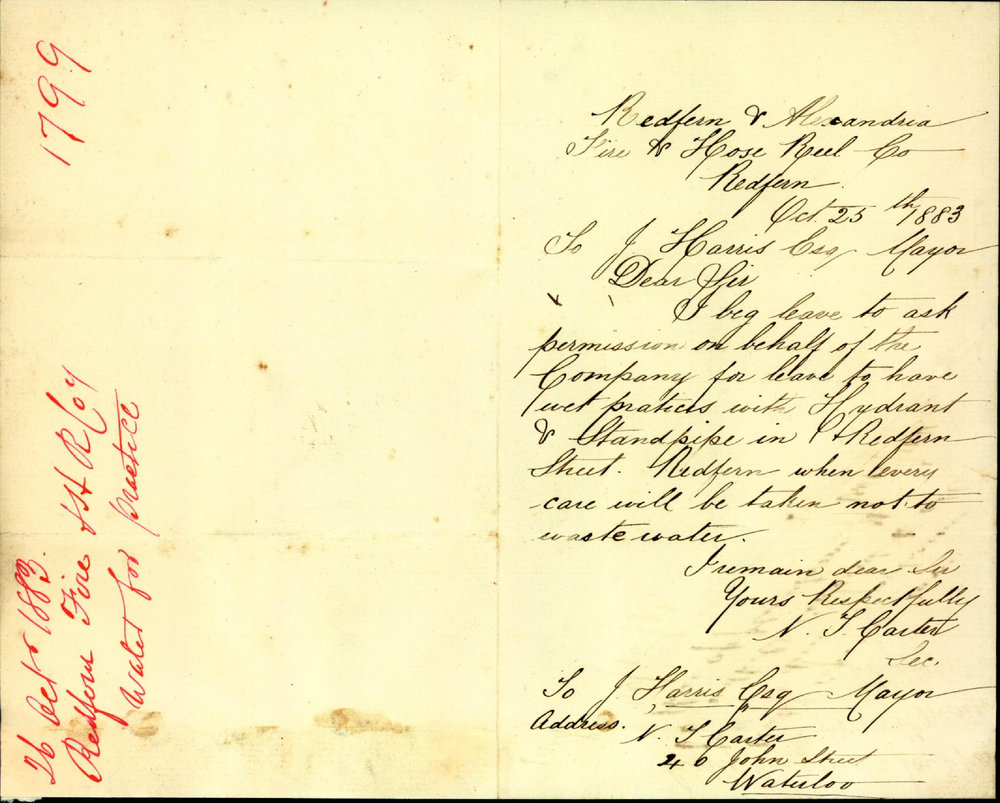 1799
26 Octr 1883.
Redfern Fire & H R Coy
Water for practice
Redfern & Alexandria
Fire & Hose Reel Co
Redfern.
Oct. 25th 1883
To J Harris Esq Mayor
Dear Sir
I beg leave to ask
permission on behalf of the
Company for leave to have
wet pratices with Hydrant
& Standpipe in Redfern
Street. Redfern when every
care will be taken not to
waste water.
I remain dear Sir
Yours Respectfully
N. J Carter
Sec.
To J Harris Esq Mayor
Address.
N. J Carter
46 John Street
Waterloo